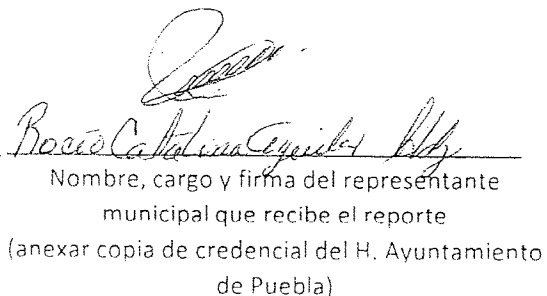 Rocio Catalina Aguilar Hdz
Nombre, cargo y firma del representante
municipal que recibe el reporte
(anexar copia de credencial del H. Ayuntamiento
de Puebla)